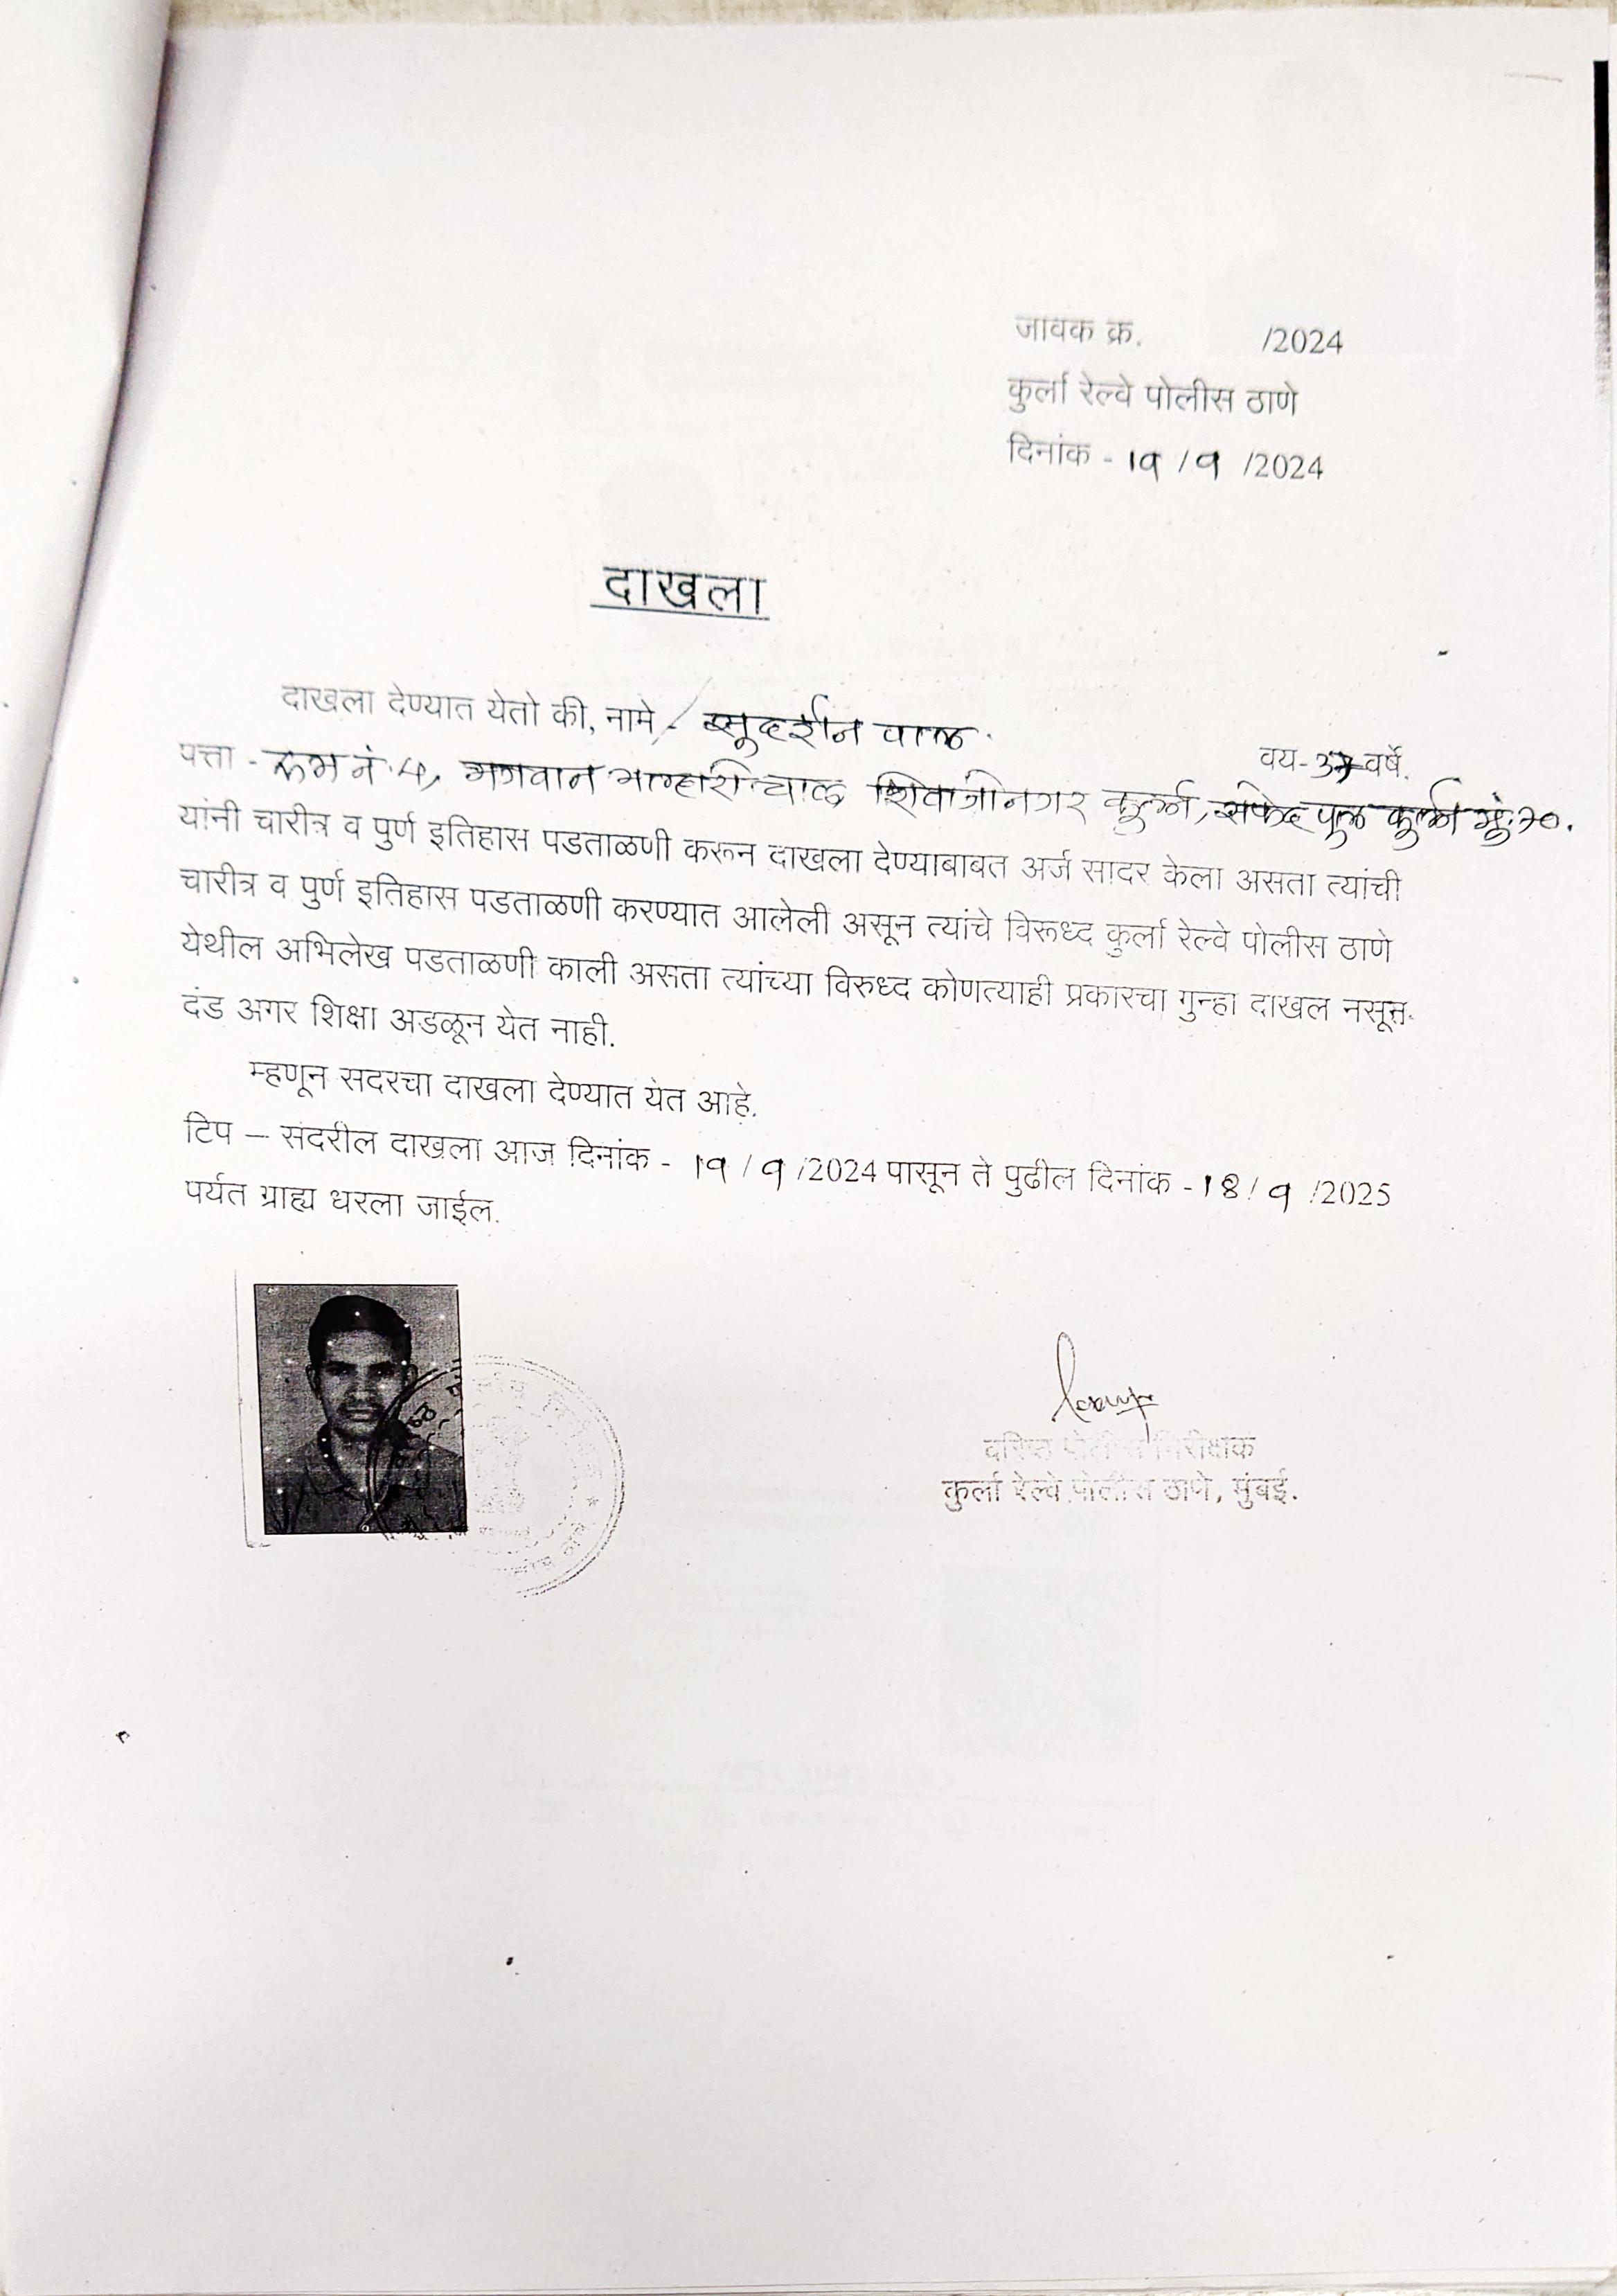 जावक क्र. /2024
कुर्ला रेल्वे पोलीस ठाणे
दिनांक - 19 / 9 /2024
दाखला
दाखला देण्यात येतो की, नामे - सुदर्शन पाल.
वय-37 वर्षे.
पत्ता - रूम नं. 4, भगवान मल्हारी चाळ शिवाजीनगर कुर्ला, सफेद पुल कुर्ला मुं. 70.
यांनी चारीत्र व पुर्ण इतिहास पडताळणी करून दाखला देण्याबाबत अर्ज सादर केला असता त्यांची
चारीत्र व पुर्ण इतिहास पडताळणी करण्यात आलेली असून त्यांचे विरूध्द कुर्ला रेल्वे पोलीस ठाणे
येथील अभिलेख पडताळणी काली असता त्यांच्या विरुध्द कोणत्याही प्रकारचा गुन्हा दाखल नसून
दंड अगर शिक्षा अडळून येत नाही.
म्हणून सदरचा दाखला देण्यात येत आहे.
टिप – सदरील दाखला आज दिनांक - 19 / 9 /2024 पासून ते पुढील दिनांक - 18 / 9 /2025
पर्यत ग्राह्य धरला जाईल.
वरिष्ठ पोलीस निरीक्षक
कुर्ला रेल्वे पोलीस ठाणे, मुंबई.